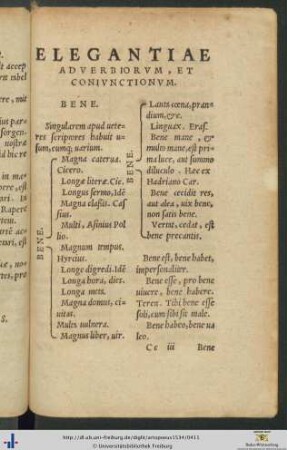 ELEGANTIAE
ADVERBIORVM, ET
CONIVNCTIONVM.
BENE.
Singularem apud uete-
res scriptores habuit u-
sum, eumq; uarium.
BENE.
Magna caterua.
Cicero.
Longæ literæ. Cic.
Longus sermo, Idē
Magna classis. Cas
sius.
Multi, Asinius Pol
lio.
Magnum tempus.
Hyrcius.
Longe digredi. Idē
Longa hora, dies.
Longa meta.
Magna domus, ci-
uitas.
Multa uulnera.
Magnus liber, uir.
BENE.
Lauta cœna, pran-
dium, &c.
Linguax. Eras.
Bene mane, &
multo mane, est pri-
ma luce, aut summo
diluculo. Hæc ex
Hadriano Car.
Bene cecidit res,
aut alea, uix bene,
non satis bene.
Vertat, cedat, est
bene precantis.
Bene est, bene habet,
impersonaliter.
Bene esse, pro bene
uiuere, bene habere.
Teren. Tibi bene esse
soli, cum sibi sit male.
Bene habeo, bene ua
leo.
Cc iii Bene
http://dl.ub.uni-freiburg.de/diglit/erasmus1534/0411
© Universitätsbibliothek Freiburg